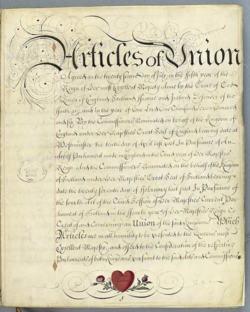 Articles of Union
Agreed on the twenty Second day of July in the fifth year of the
Reign of Her most Excellent Majesty Anne by the Grace of God
Queen of England Scotland France and Ireland Defender of the
Faith &c and in the year of Our Lord One thousand seven hundred
and six By the Commissioners Nominated on behalf of the Kingdom of
England under Her Majesties Great Seal of England bearing date at
Westminster the tenth day of April last past In Pursuance of an
Act of Parliament made in England in the third year of Her Majesties
Reign and the Commissioners Nominated on the behalf of the Kingdom
of Scotland under Her Majesties Great Seal of Scotland bearing
date the twenty seventh day of February last past In Pursuance of
the fourth Act of the third Session of the Present
Parliament of Scotland in the fifth year of Her Majesties Reign to
Treat of and Concerning an Union of the said Kingdoms Which
Articles are in all humility to be presented to the Queens most
Excellent Majesty and offered to the Consideration of the respective
Parliaments of both Kingdoms pursuant to the said Acts and Commissions